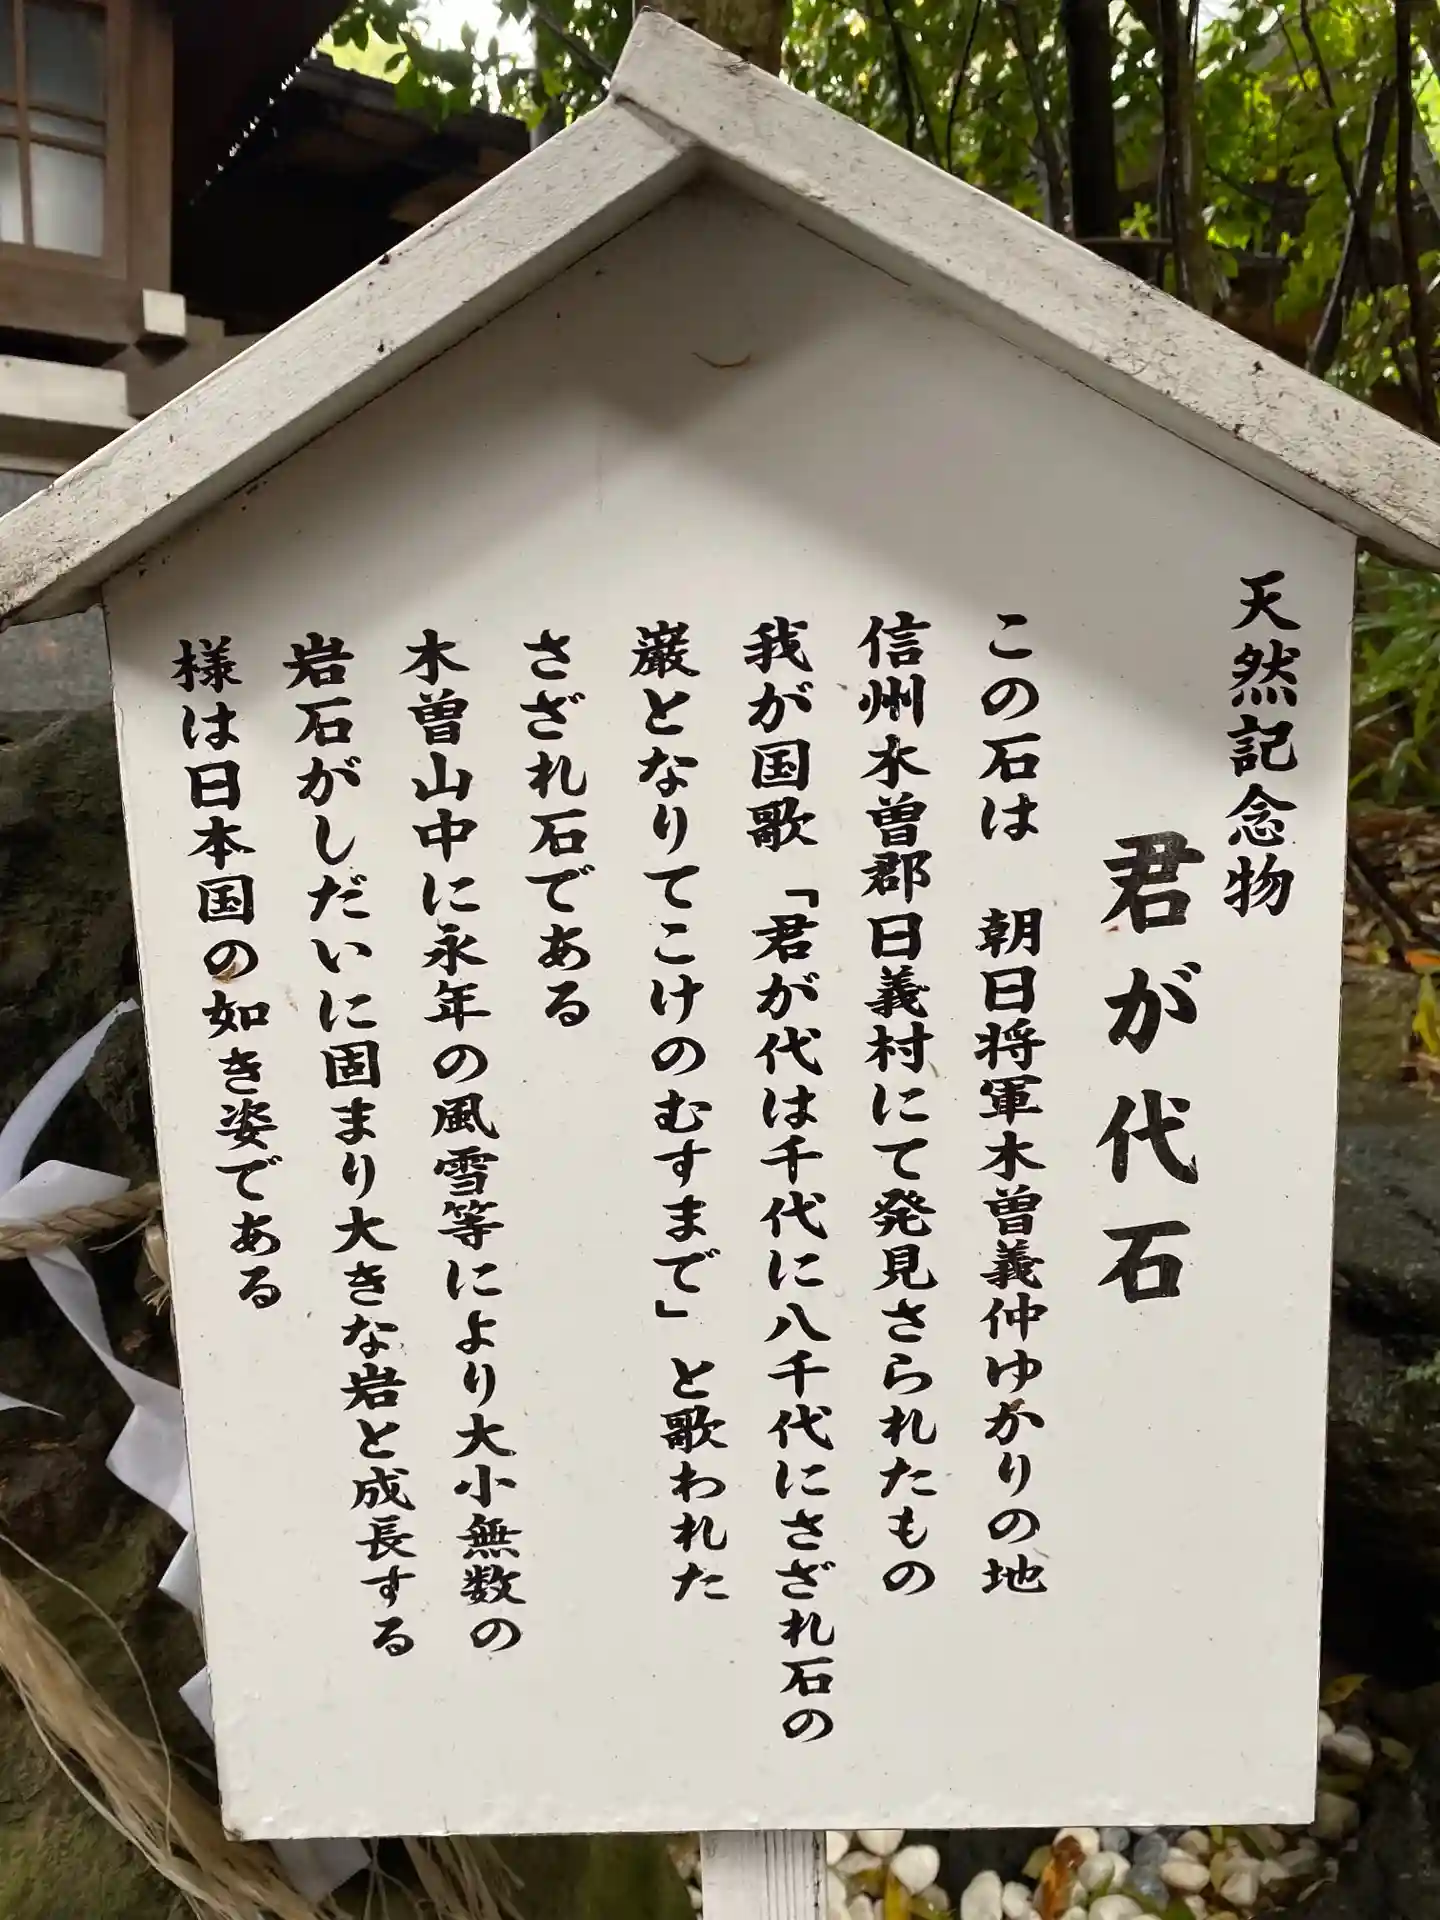 天然記念物
君が代石
この石は　朝日将軍木曽義仲ゆかりの地
信州木曽郡日義村にて発見されたもの
我が国歌「君が代は千代に八千代にさざれ石の
巌となりてこけのむすまで」と歌われた
さざれ石である
木曽山中に永年の風雪等により大小無数の
岩石がしだいに固まり大きな岩と成長する
様は日本国の如き姿である